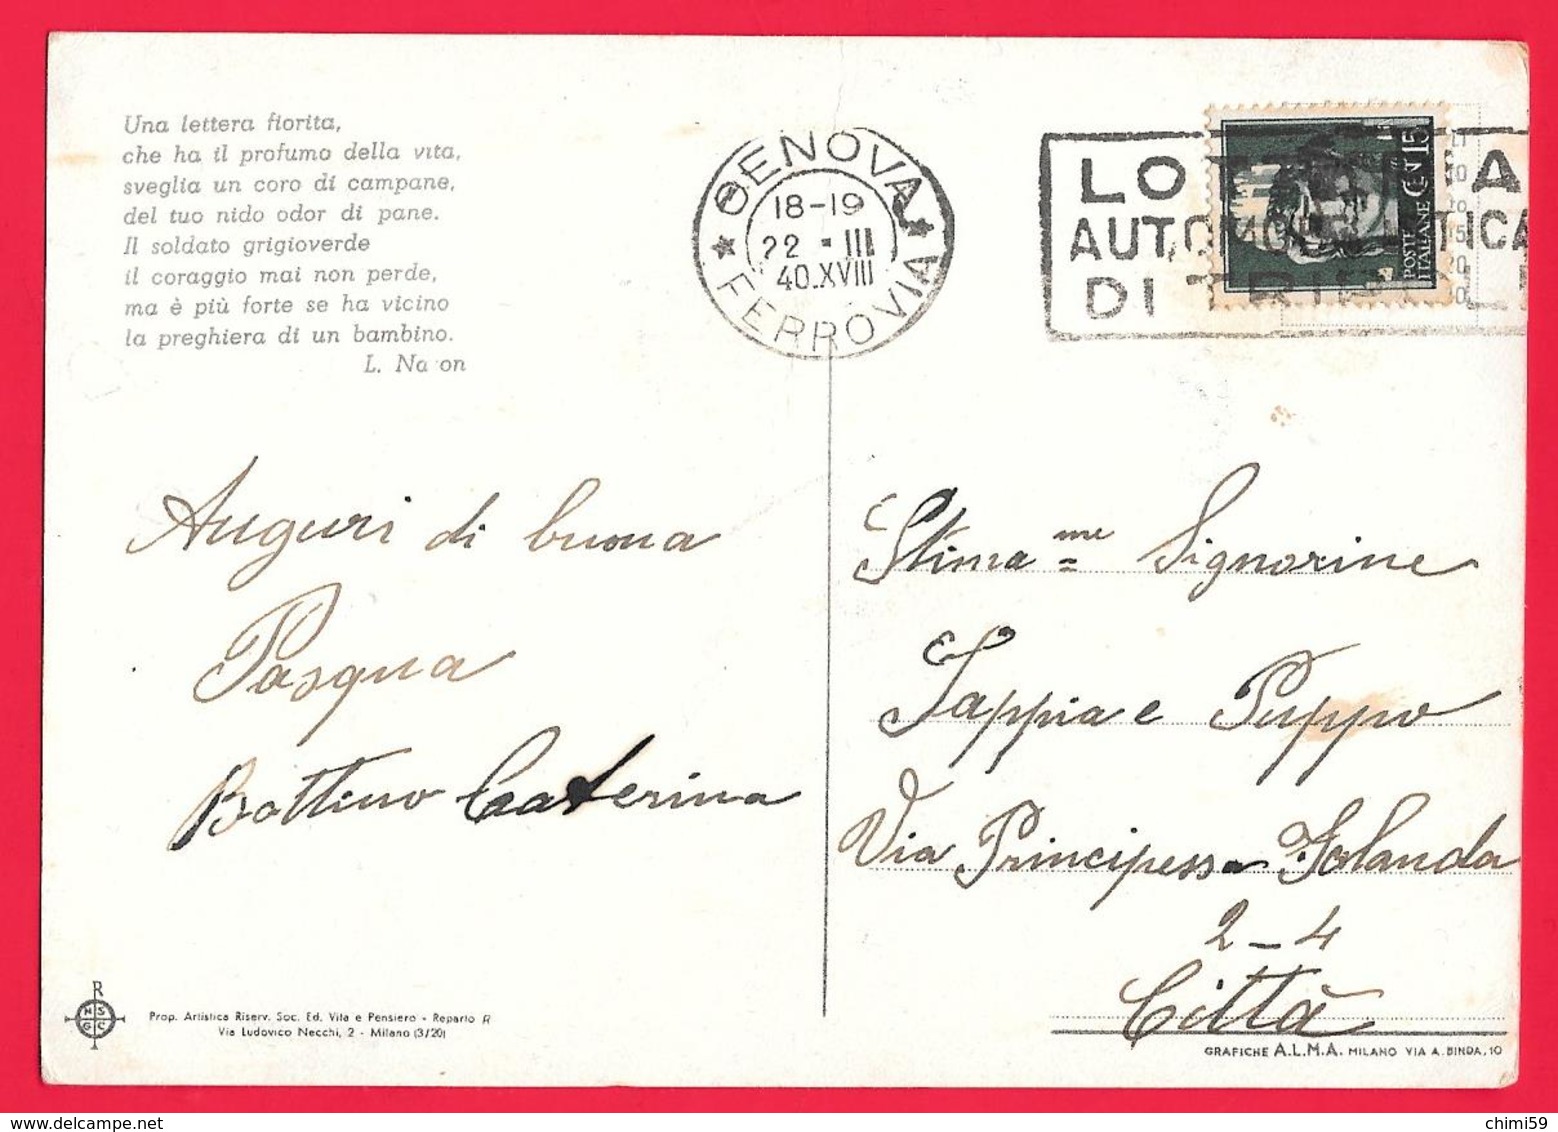 Una lettera fiorita,
che ha il profumo della vita,
sveglia un coro di campane,
del tuo nido odor di pane.
Il soldato grigioverde
il coraggio mai non perde,
ma è più forte se ha vicino
la preghiera di un bambino.
L. Na on
GENOVA
18-19
22 - III
40.XVIII
FERROVIA
LO A
AUTOMOBILISTICA
DI TRIPOLI
POSTE ITALIANE CEN 15
Auguri di buona
Pasqua
Bottino Caterina
Stima me Signorine
Tappia e Puppo
Via Principessa Iolanda
2 - 4
Città
R
N S
G C
Prop. Artistica Riserv. Soc. Ed. Vita e Pensiero - Reparto R
Via Ludovico Necchi, 2 - Milano (3/20)
GRAFICHE A.L.M.A. MILANO VIA A. BINDA, 10
chimi59